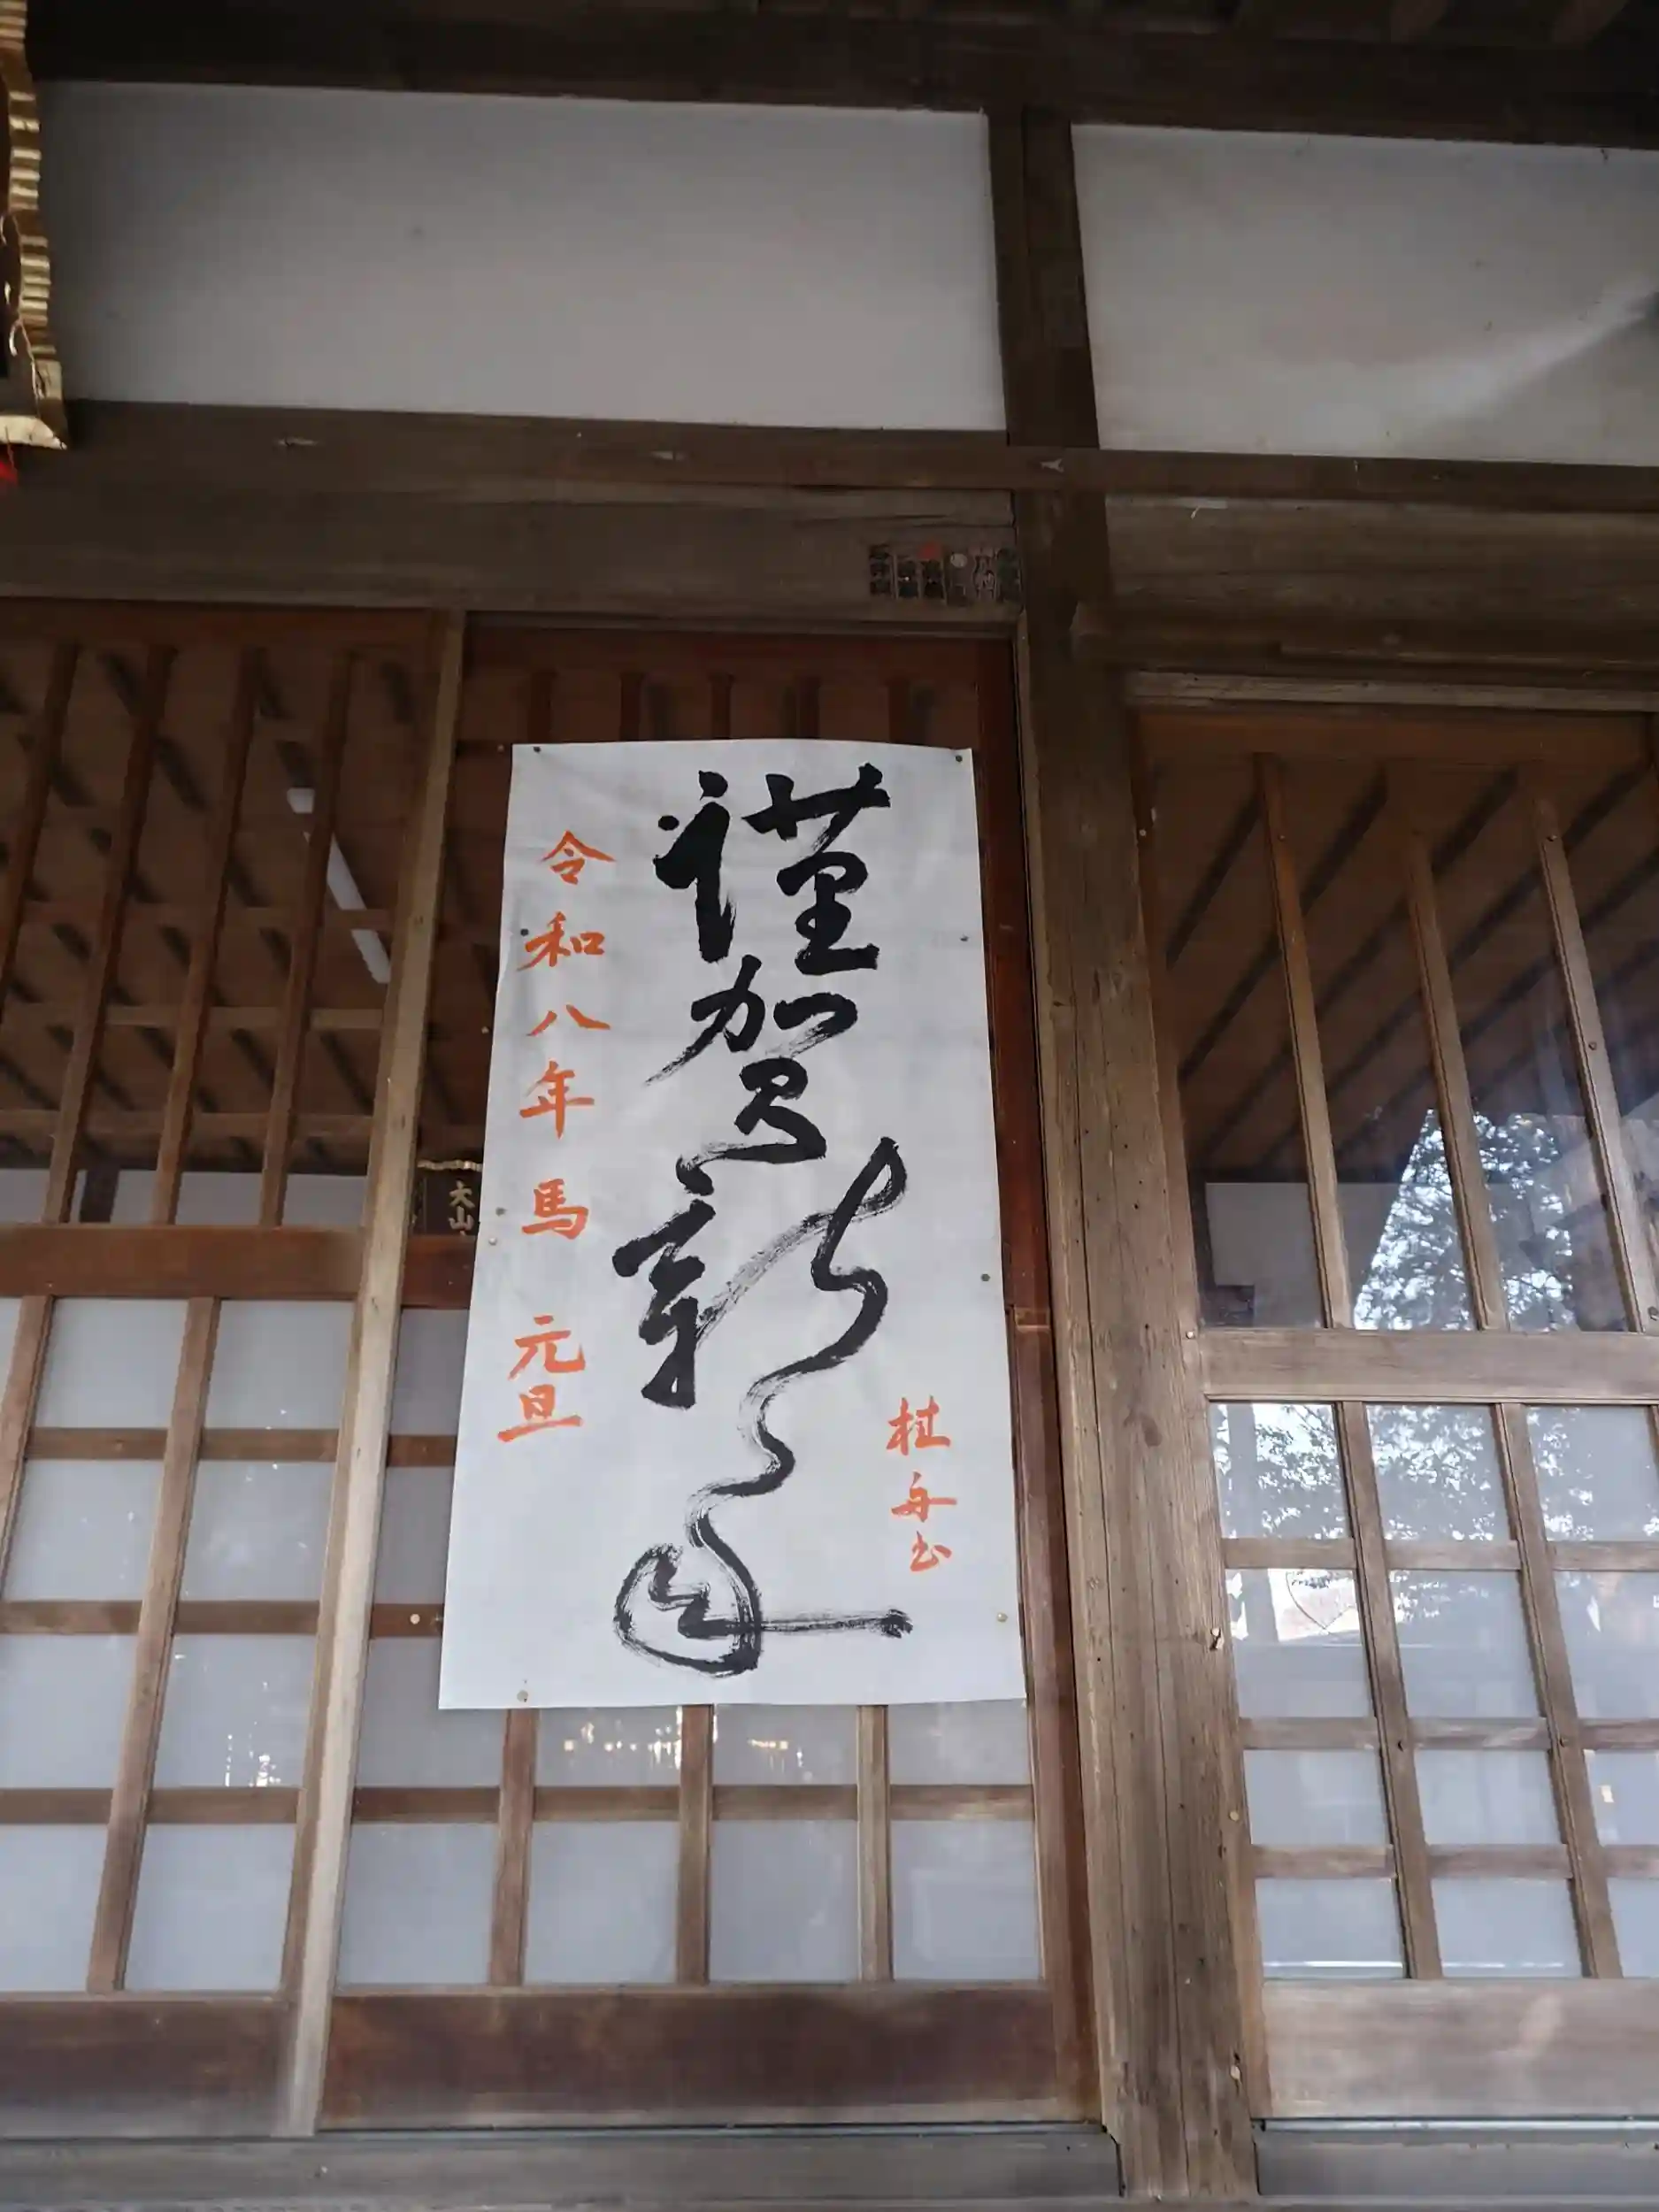 謹賀新年
令和八年馬 元旦
大山